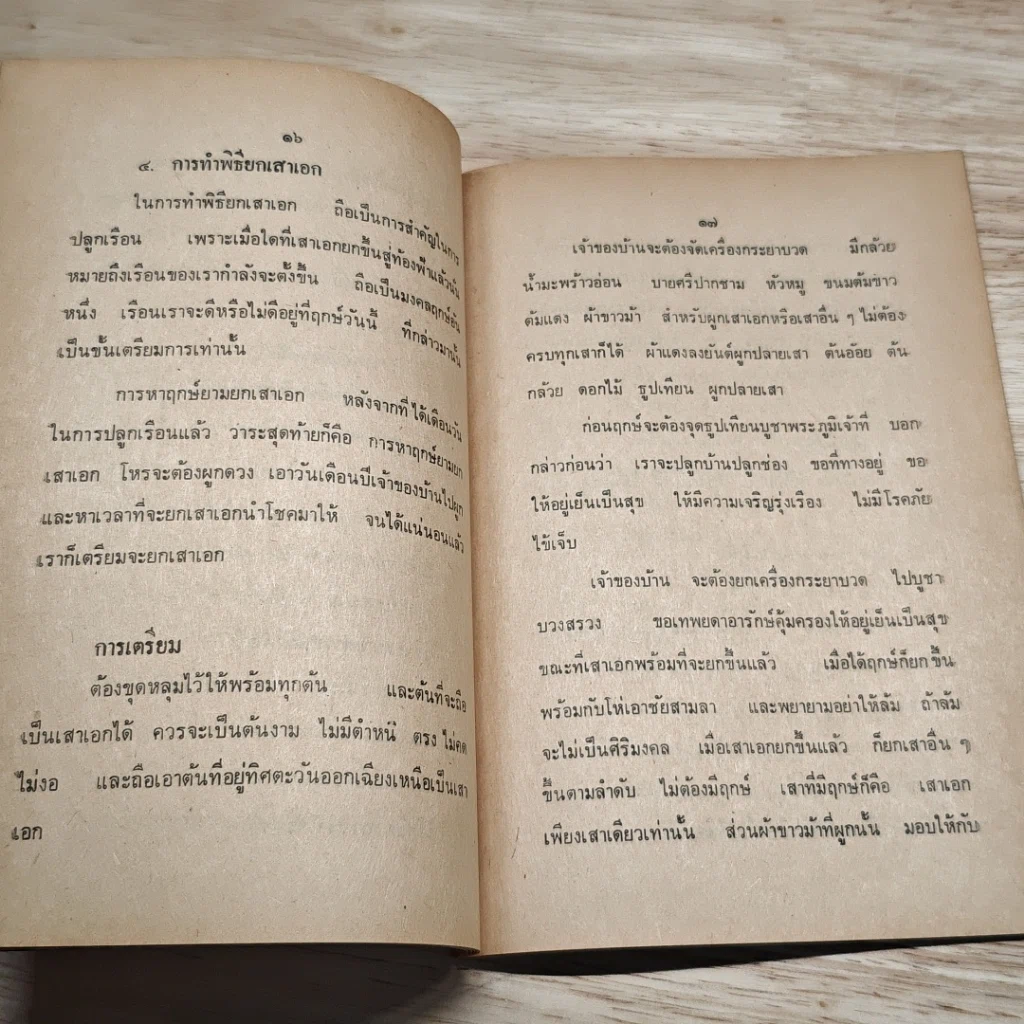 ๑๖
๔. การทำพิธียกเสาเอก
ในการทำพิธียกเสาเอก ถือเป็นการสำคัญในการ
ปลูกเรือน เพราะเมื่อใดที่เสาเอกยกขึ้นสู่ท้องฟ้าแล้วนั้น
หมายถึงเรือนของเรากำลังจะตั้งขึ้น ถือเป็นมงคลฤกษ์อัน
หนึ่ง เรือนเราจะดีหรือไม่ดีอยู่ที่ฤกษ์วันนี้ ที่กล่าวมานั้น
เป็นขั้นเตรียมการเท่านั้น
การหาฤกษ์ยามยกเสาเอก หลังจากที่ได้เดือนวัน
ในการปลูกเรือนแล้ว วาระสุดท้ายก็คือ การหาฤกษ์ยามยก
เสาเอก โหรจะต้องผูกดวง เอาวันเดือนปีเจ้าของบ้านไปผูก
และหาเวลาที่จะยกเสาเอกนำโชคมาให้ จนได้แน่นอนแล้ว
เราก็เตรียมจะยกเสาเอก
การเตรียม
ต้องขุดหลุมไว้ให้พร้อมทุกต้น และต้นที่จะถือ
เป็นเสาเอกได้ ควรจะเป็นต้นงาม ไม่มีตำหนิ ตรง ไม่คด
ไม่งอ และถือเอาต้นที่อยู่ทิศตะวันออกเฉียงเหนือเป็นเสา
เอก
๑๗
เจ้าของบ้านจะต้องจัดเครื่องกระยาบวด มีกล้วย
น้ำมะพร้าวอ่อน บายศรีปากชาม หัวหมู ขนมต้มขาว
ต้มแดง ผ้าขาวม้า สำหรับผูกเสาเอกหรือเสาอื่น ๆ ไม่ต้อง
ครบทุกเสาก็ได้ ผ้าแดงลงยันต์ผูกปลายเสา ต้นอ้อย ต้น
กล้วย ดอกไม้ ธูปเทียน ผูกปลายเสา
ก่อนฤกษ์จะต้องจุดธูปเทียนบูชาพระภูมิเจ้าที่ บอก
กล่าวก่อนว่า เราจะปลูกบ้านปลูกช่อง ขอที่ทางอยู่ ขอ
ให้อยู่เย็นเป็นสุข ให้มีความเจริญรุ่งเรือง ไม่มีโรคภัย
ไข้เจ็บ
เจ้าของบ้าน จะต้องยกเครื่องกระยาบวด ไปบูชา
บวงสรวง ขอเทพยดาอารักษ์คุ้มครองให้อยู่เย็นเป็นสุข
ขณะที่เสาเอกพร้อมที่จะยกขึ้นแล้ว เมื่อได้ฤกษ์ก็ยกขึ้น
พร้อมกับโห่เอาชัยสามลา และพยายามอย่าให้ล้ม ถ้าล้ม
จะไม่เป็นศิริมงคล เมื่อเสาเอกยกขึ้นแล้ว ก็ยกเสาอื่น ๆ
ขึ้นตามลำดับ ไม่ต้องมีฤกษ์ เสาที่มีฤกษ์ก็คือ เสาเอก
เพียงเสาเดียวเท่านั้น ส่วนผ้าขาวม้าที่ผูกนั้น มอบให้กับ